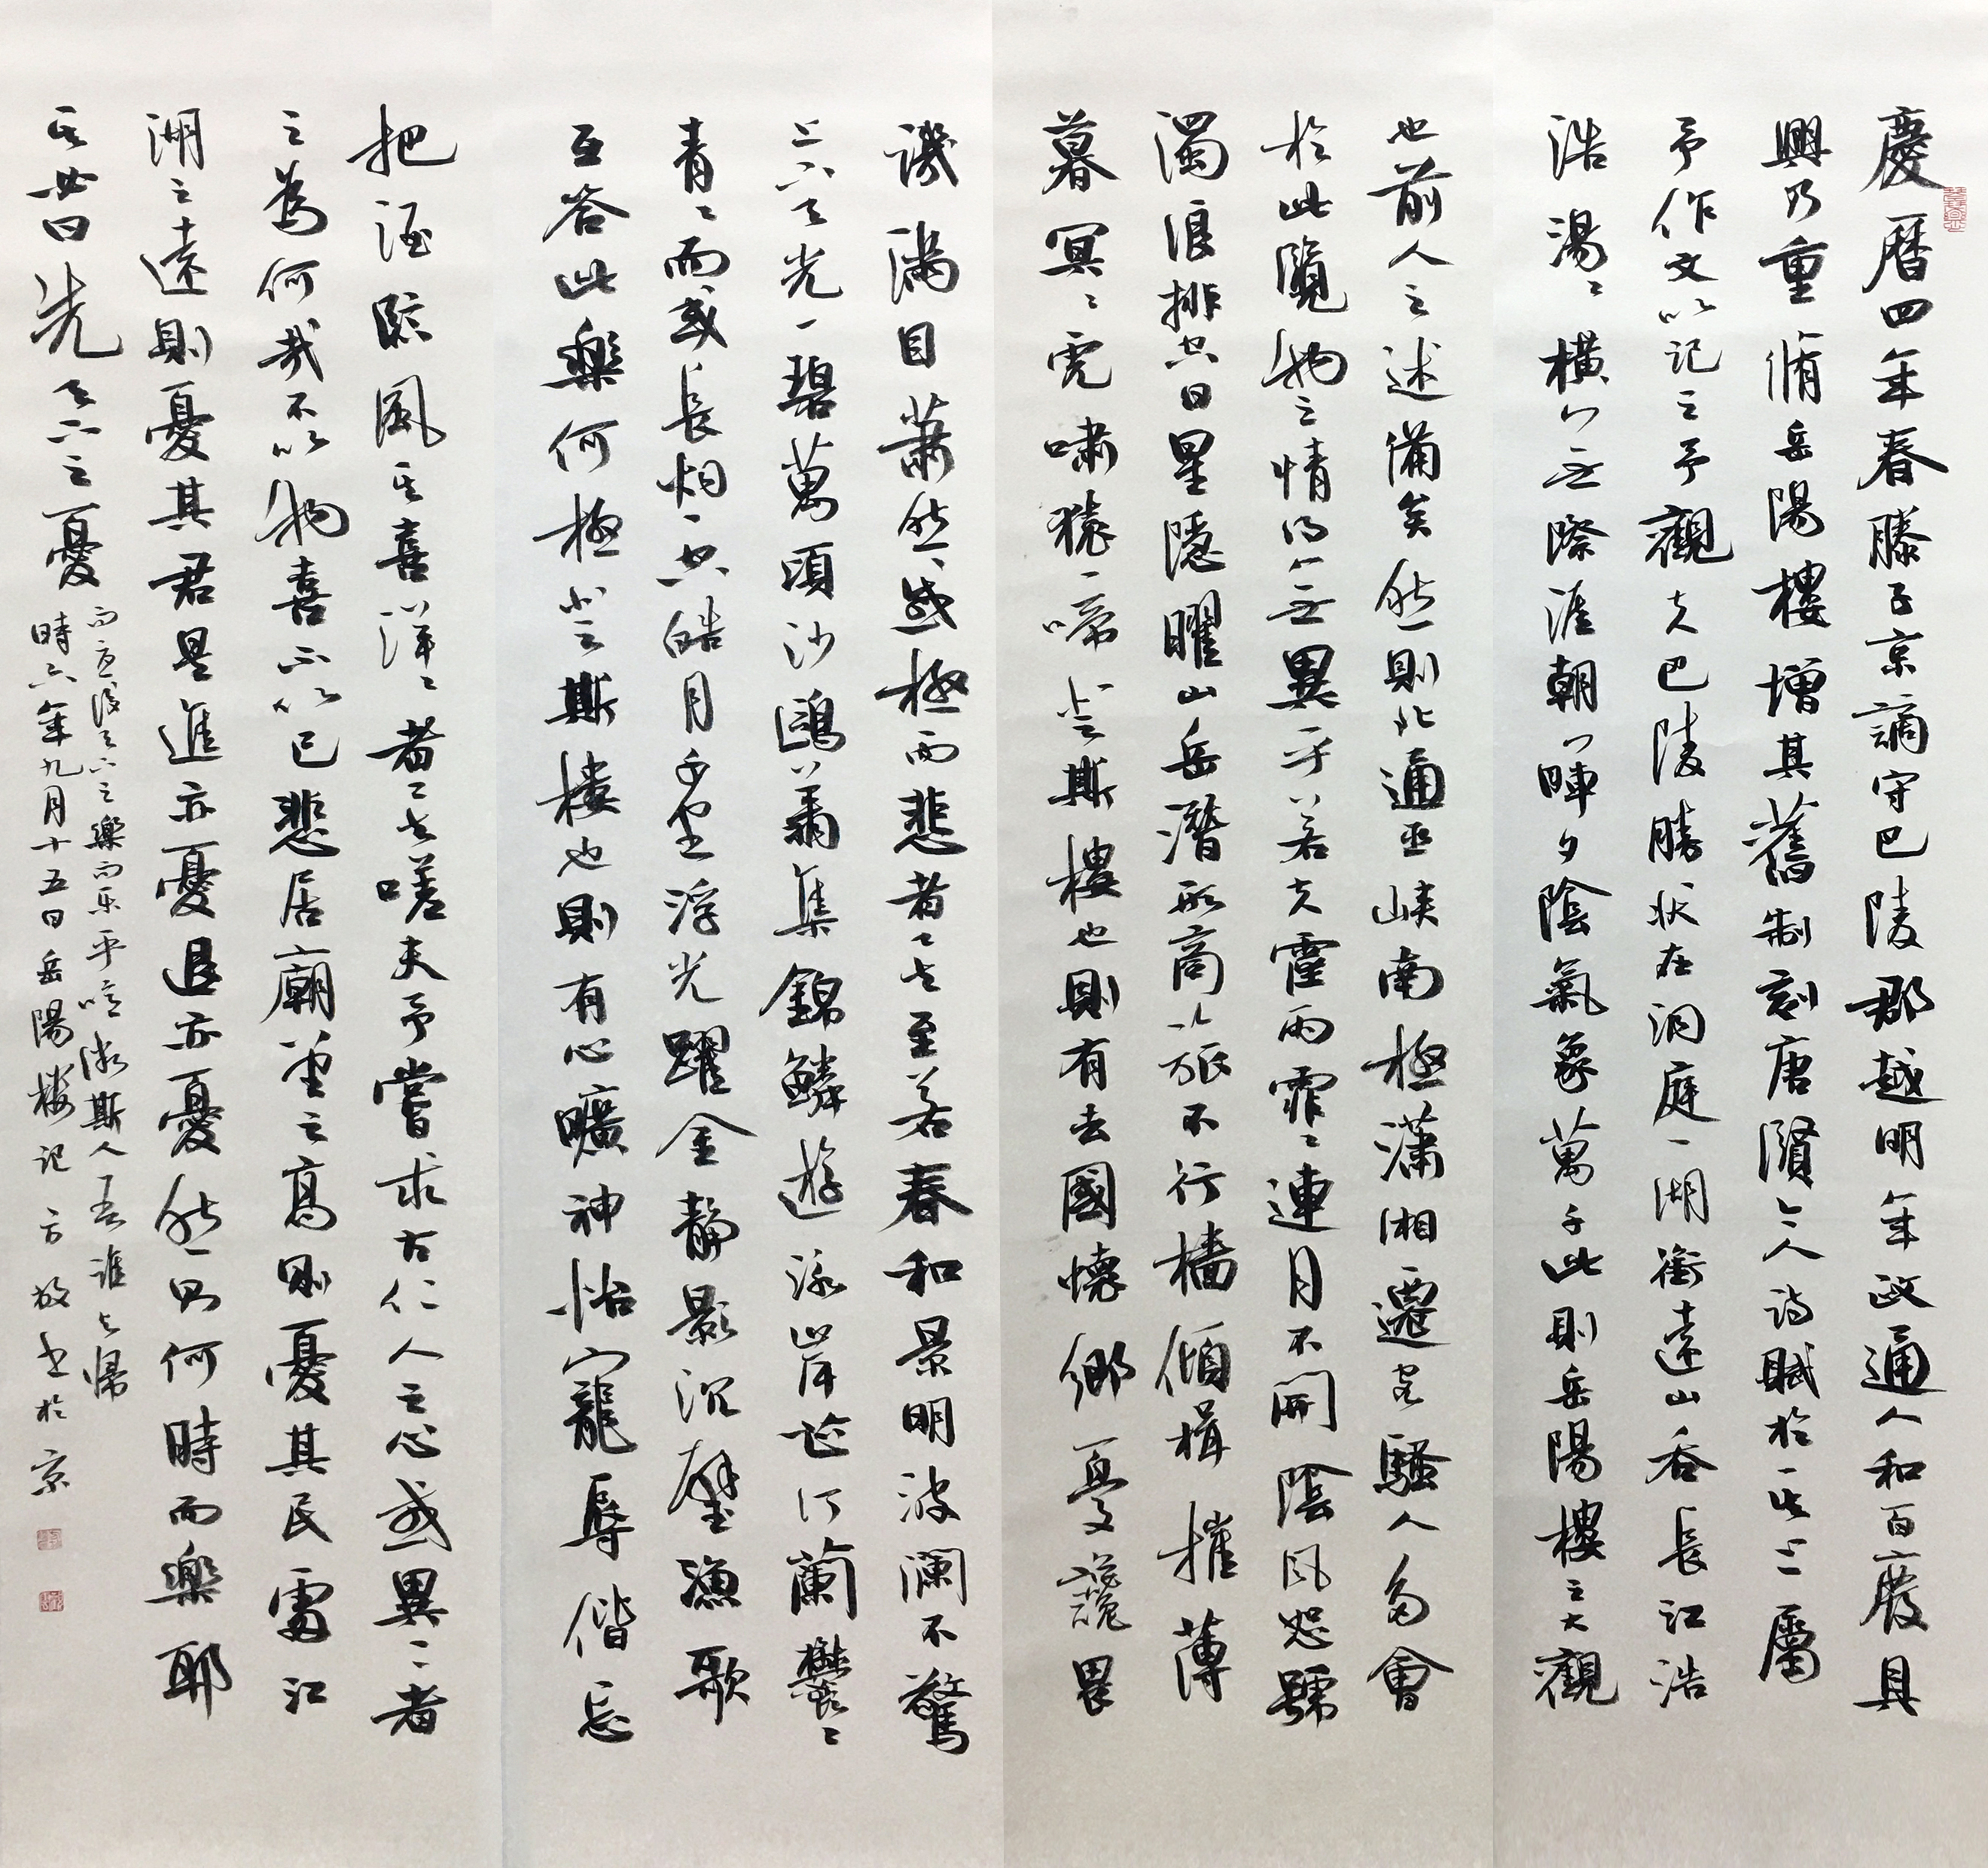 慶曆四年春滕子京謫守巴陵郡越明年政通人和百廢具
興乃重脩岳陽樓增其舊制刻唐賢今人詩賦於其上屬
予作文以記之予觀夫巴陵勝狀在洞庭一湖銜遠山吞長江浩
浩湯々橫無際涯朝暉夕陰氣象萬千此則岳陽樓之大觀
也前人之述備矣然則北通巫峽南極瀟湘遷客騷人多會
於此覽物之情得無異乎若夫霪雨霏々連月不開陰風怒號
濁浪排空日星隱曜山岳潛形商旅不行檣傾楫摧薄
暮冥々虎嘯猿啼登斯樓也則有去國懷鄉憂讒畏
譏滿目蕭然感極而悲者々矣至若春和景明波瀾不驚
上下天光一碧萬頃沙鷗翔集錦鱗遊泳岸芷汀蘭鬱々
青々而或長烟一空皓月千里浮光躍金靜影沉璧漁歌
互答此樂何極登斯樓也則有心曠神怡寵辱偕忘
把酒臨風其喜洋々者々矣嗟夫予嘗求古仁人之心或異二者
之為何哉不以物喜不以己悲居廟堂之高則憂其民處江
湖之遠則憂其君是進亦憂退亦憂然則何時而樂耶
其必曰先天下之憂
而憂後天下之樂而乐乎噫微斯人吾誰與歸
時六年九月十五日岳陽樓記方放書於京